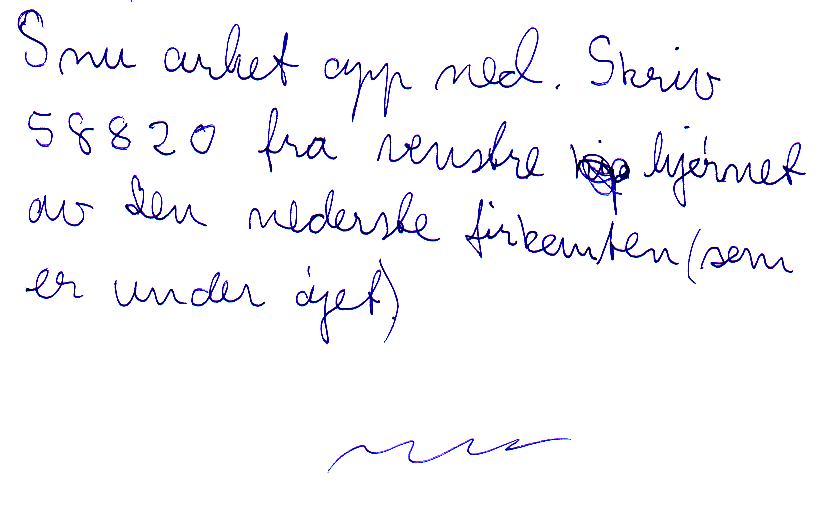 Snu arket opp ned. Skriv
58820 fra venstre hjørnet
av den nederste firkanten (som
er under øyet)